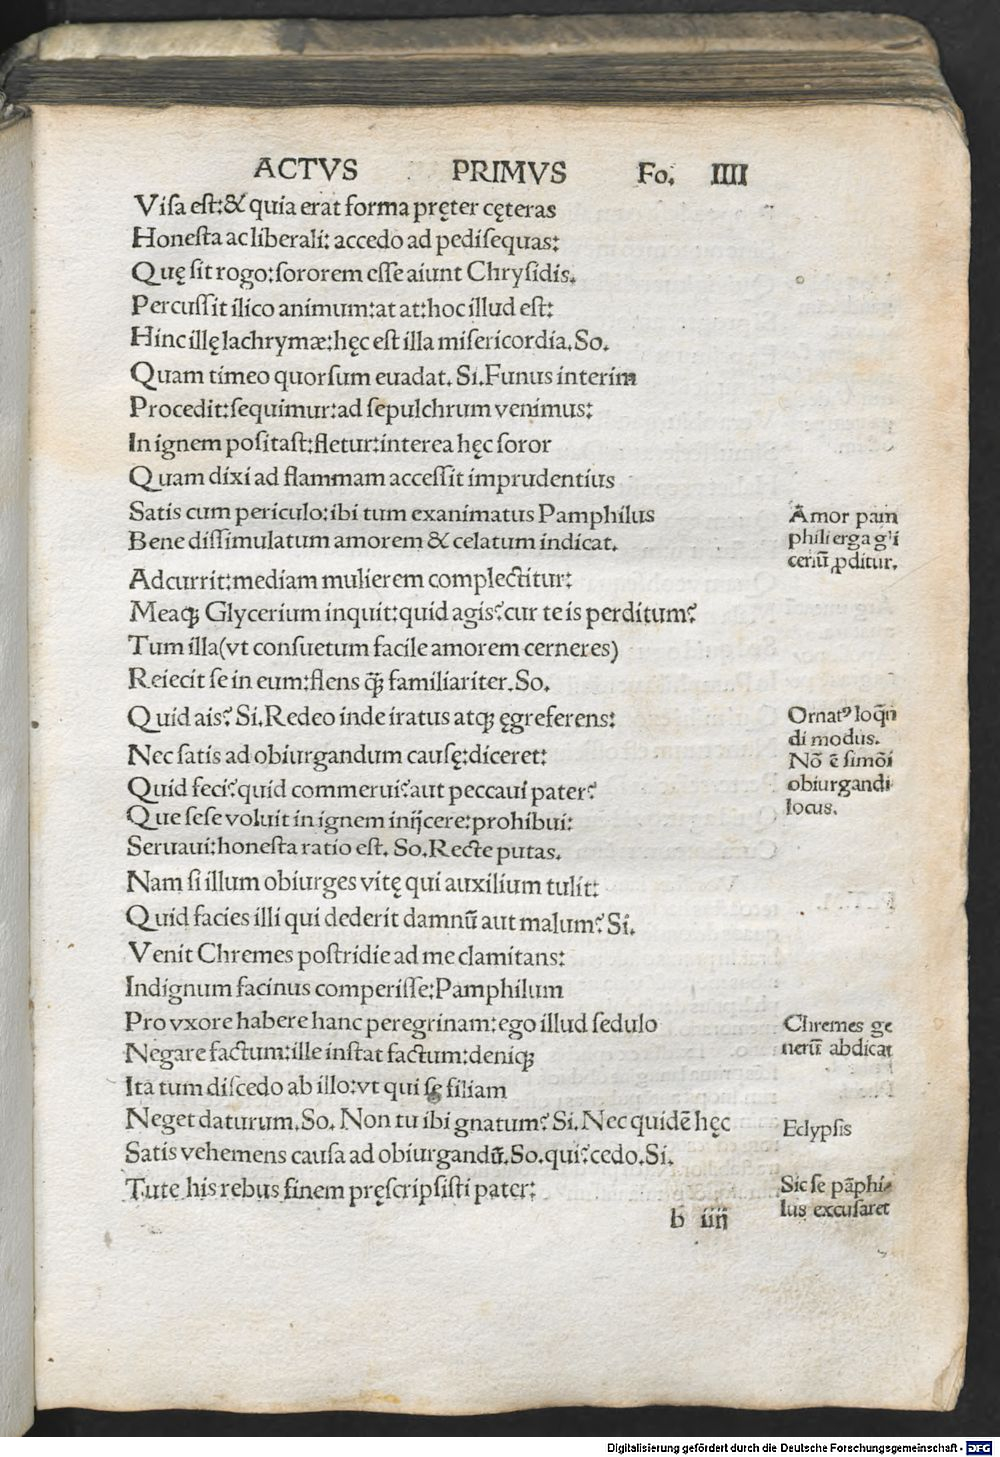 ACTVS PRIMVS Fo. IIII
Viſa eſt:& quia erat forma pręter cęteras
Honeſta ac liberali: accedo ad pediſequas:
Quę ſit rogo:ſororem eſſe aiunt Chryſidis.
Percuſſit ilico animum:at at:hoc illud eſt:
Hinc illę lachrymæ:hęc eſt illa miſericordia.So.
Quam timeo quorſum euadat. Si.Funus interim
Procedit:ſequimur:ad ſepulchrum venimus:
In ignem poſitaſt:fletur:interea hęc ſoror
Quam dixi ad flammam acceſſit imprudentius
Satis cum periculo:ibi tum exanimatus Pamphilus
Bene diſſimulatum amorem & celatum indicat.
Adcurrit:mediam mulierem complectitur:
Meaꝗ Glycerium inquit:quid agis?cur te is perditum?
Tum illa(vt conſuetum facile amorem cerneres)
Reiecit ſe in eum:flens ꝗ̃ familiariter.So.
Quid ais? Si.Redeo inde iratus atꝗ ęgreferens:
Nec ſatis ad obiurgandum cauſę:diceret:
Quid feci?quid commerui?aut peccaui pater?
Que ſeſe voluit in ignem inijcere:prohibui:
Seruaui:honeſta ratio eſt. So.Recte putas.
Nam ſi illum obiurges vitę qui auxilium tulit:
Quid facies illi qui dederit damnũ aut malum? Si.
Venit Chremes poſtridie ad me clamitans:
Indignum facinus comperiſſe:Pamphilum
Pro vxore habere hanc peregrinam:ego illud ſedulo
Negare factum:ille inſtat factum:deniꝗ
Ita tum diſcedo ab illo:vt qui ſe filiam
Neget daturum.So. Non tu ibi gnatum? Si.Nec quidẽ hęc
Satis vehemens cauſa ad obiurgandũ.So.qui?cedo.Si.
Tute his rebus finem pręſcripſiſti pater:
b iiij
Amor pam
phili erga gľi
ceriũ ꝓditur.
Ornatꝰ loq̃n
di modus.
Nõ ẽ ſimõi
obiurgandi
locus.
Chremes ge
nerũ abdicat
Eclypſis
Sic ſe pãphi-
lus excuſaret
Digitalisierung gefördert durch die Deutsche Forschungsgemeinschaft - DFG